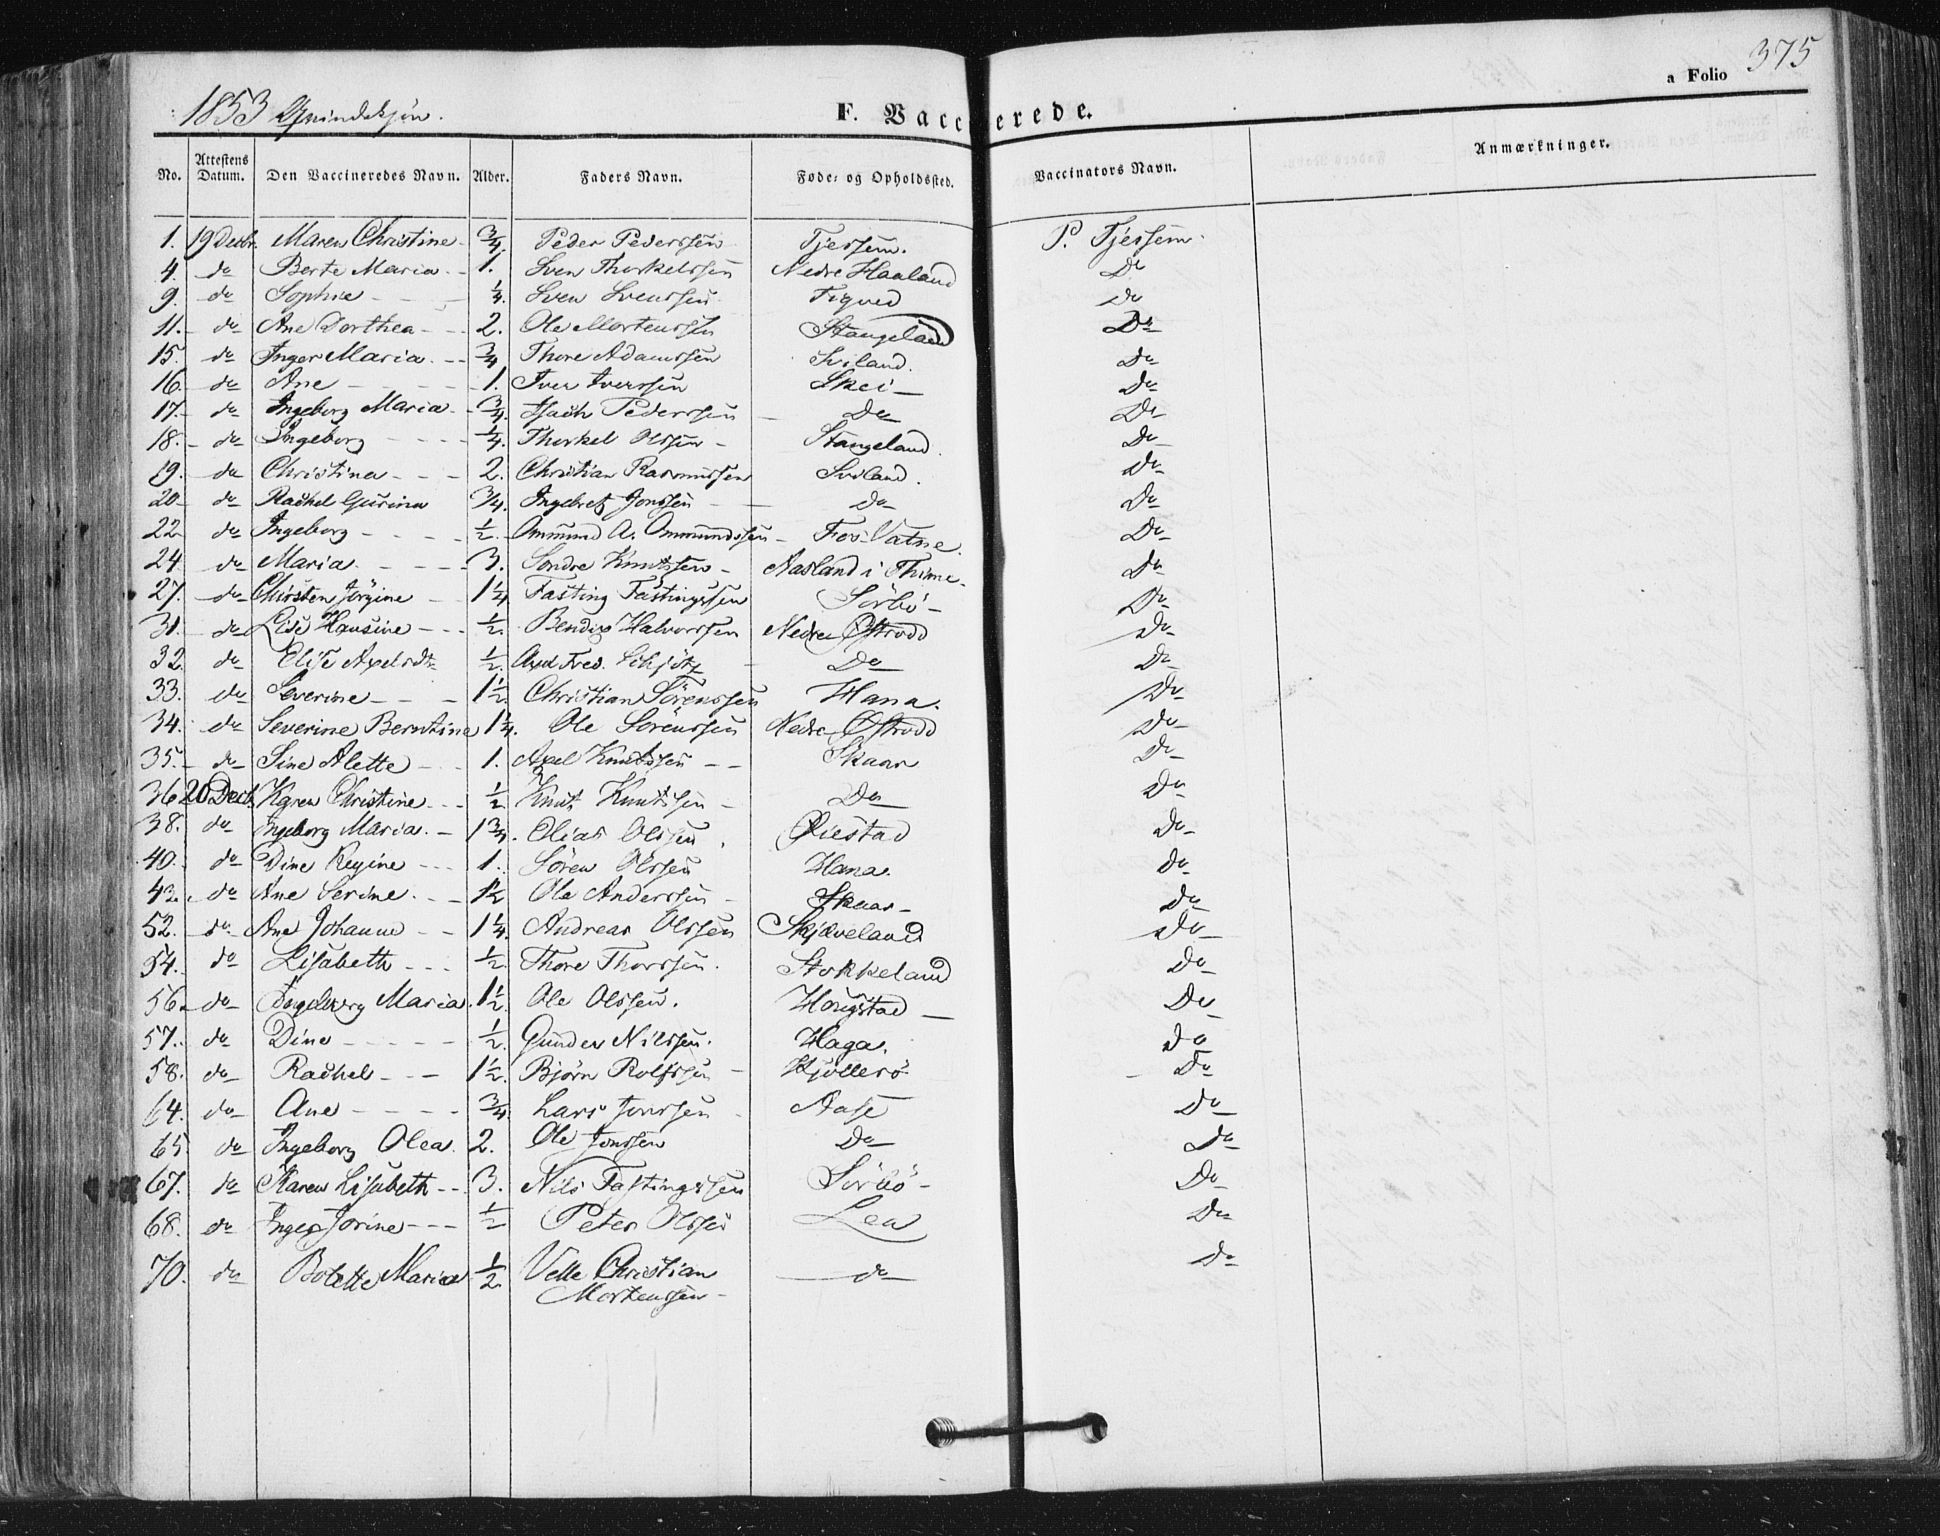 375
a Folio
1853 Qvindekjön.
F. Vaccinerede.
No. Attestens Datum. Den Vaccineredes Navn. Alder. Faders Navn. Føde- og Opholdssted. Vaccinators Navn. Anmærkninger.
1. 19 Decbr. Maren Christine 3/4. Peder Pederssen Tjessem. P. Tjessem.
4. do Berte Maria 1. Sven Thorkelssen Nedre Haaland Do
9. do Sophie 1/4. Sven Svenssen Tiqved Do
11. do Ane Dorthea 2. Ole Mortenssen Stangeland Do
15. do Inger Maria 3/4 Thore Adamssen Sviland. Do
16. do Ane 1. Iver Iverssen Skei Do
17. do Ingeborg Maria 3/4. Isach Pederssen Do Do
18. do Ingeborg 1/4. Thorkel Olssen Stangeland. Do
19. do Christina 2. Christian Rasmussen Sviland. Do
20 do Rachel Gurina 3/4. Ingebret Jonssen do Do
22 do Ingeborg 1/2. Ommund A. Ommundssen Fos-Vatne. Do
24 do Maria. 3. Sondre Knutssen Aasland i Thime. Do
27. do Chirsten Jörgine 1 1/4 Fasting Fastingssen Sörbö Do
31. do Lise Hansine 1/2. Bendix Halvorssen Nedre Østrød Do
32 do Elise Axelsdtr 1/2. Axel Fred. Schjötz Do Do
33. do Severine 1 1/2. Christian Sörenssen Hana. Do
34. do Severine Berntine 1 1/4. Ole Sörenssen Nedre Østrød Do
35. do Sine Alette 1. Axel Knutssen Skaar Do
36 20 Decb. Karen Christine 1/2 Knut Knutssen Do Do
38. do Ingeborg Maria. 1 3/4. Elias Olssen. Riestad Do
40. do Dine Regine 1. Sören Olssen Hana. Do
43. do Ane Serine. 1 1/2 Ole Anderssen Skaar Do
52. do Ane Johanne 1 1/4. Andreas Olssen Skjæveland Do
54. do Lisabeth 1/2. Thore Thorssen. Stokkeland Do
56. do Ingeborg Maria. 1 1/2 Ole Olssen. Hougstad Do
57. do Dine 1/2. Gunder Nilssen. Haga. do
58. do Rachel 1 1/2. Björn Rolfssen Hjöllerö Do
64. do Ane 3/4. Lars Jonssen Aase Do
65 do Ingeborg Olea. 2. Ole Jonssen Do Do
67. do Karen Lisabeth 3. Nils Fastingssen Sörbö Do
68. do Inger Jorine 1/2 Peter Olssen Lea Do
70. do Bolette Maria 1/2. Velle Christian do do
Mortenssen